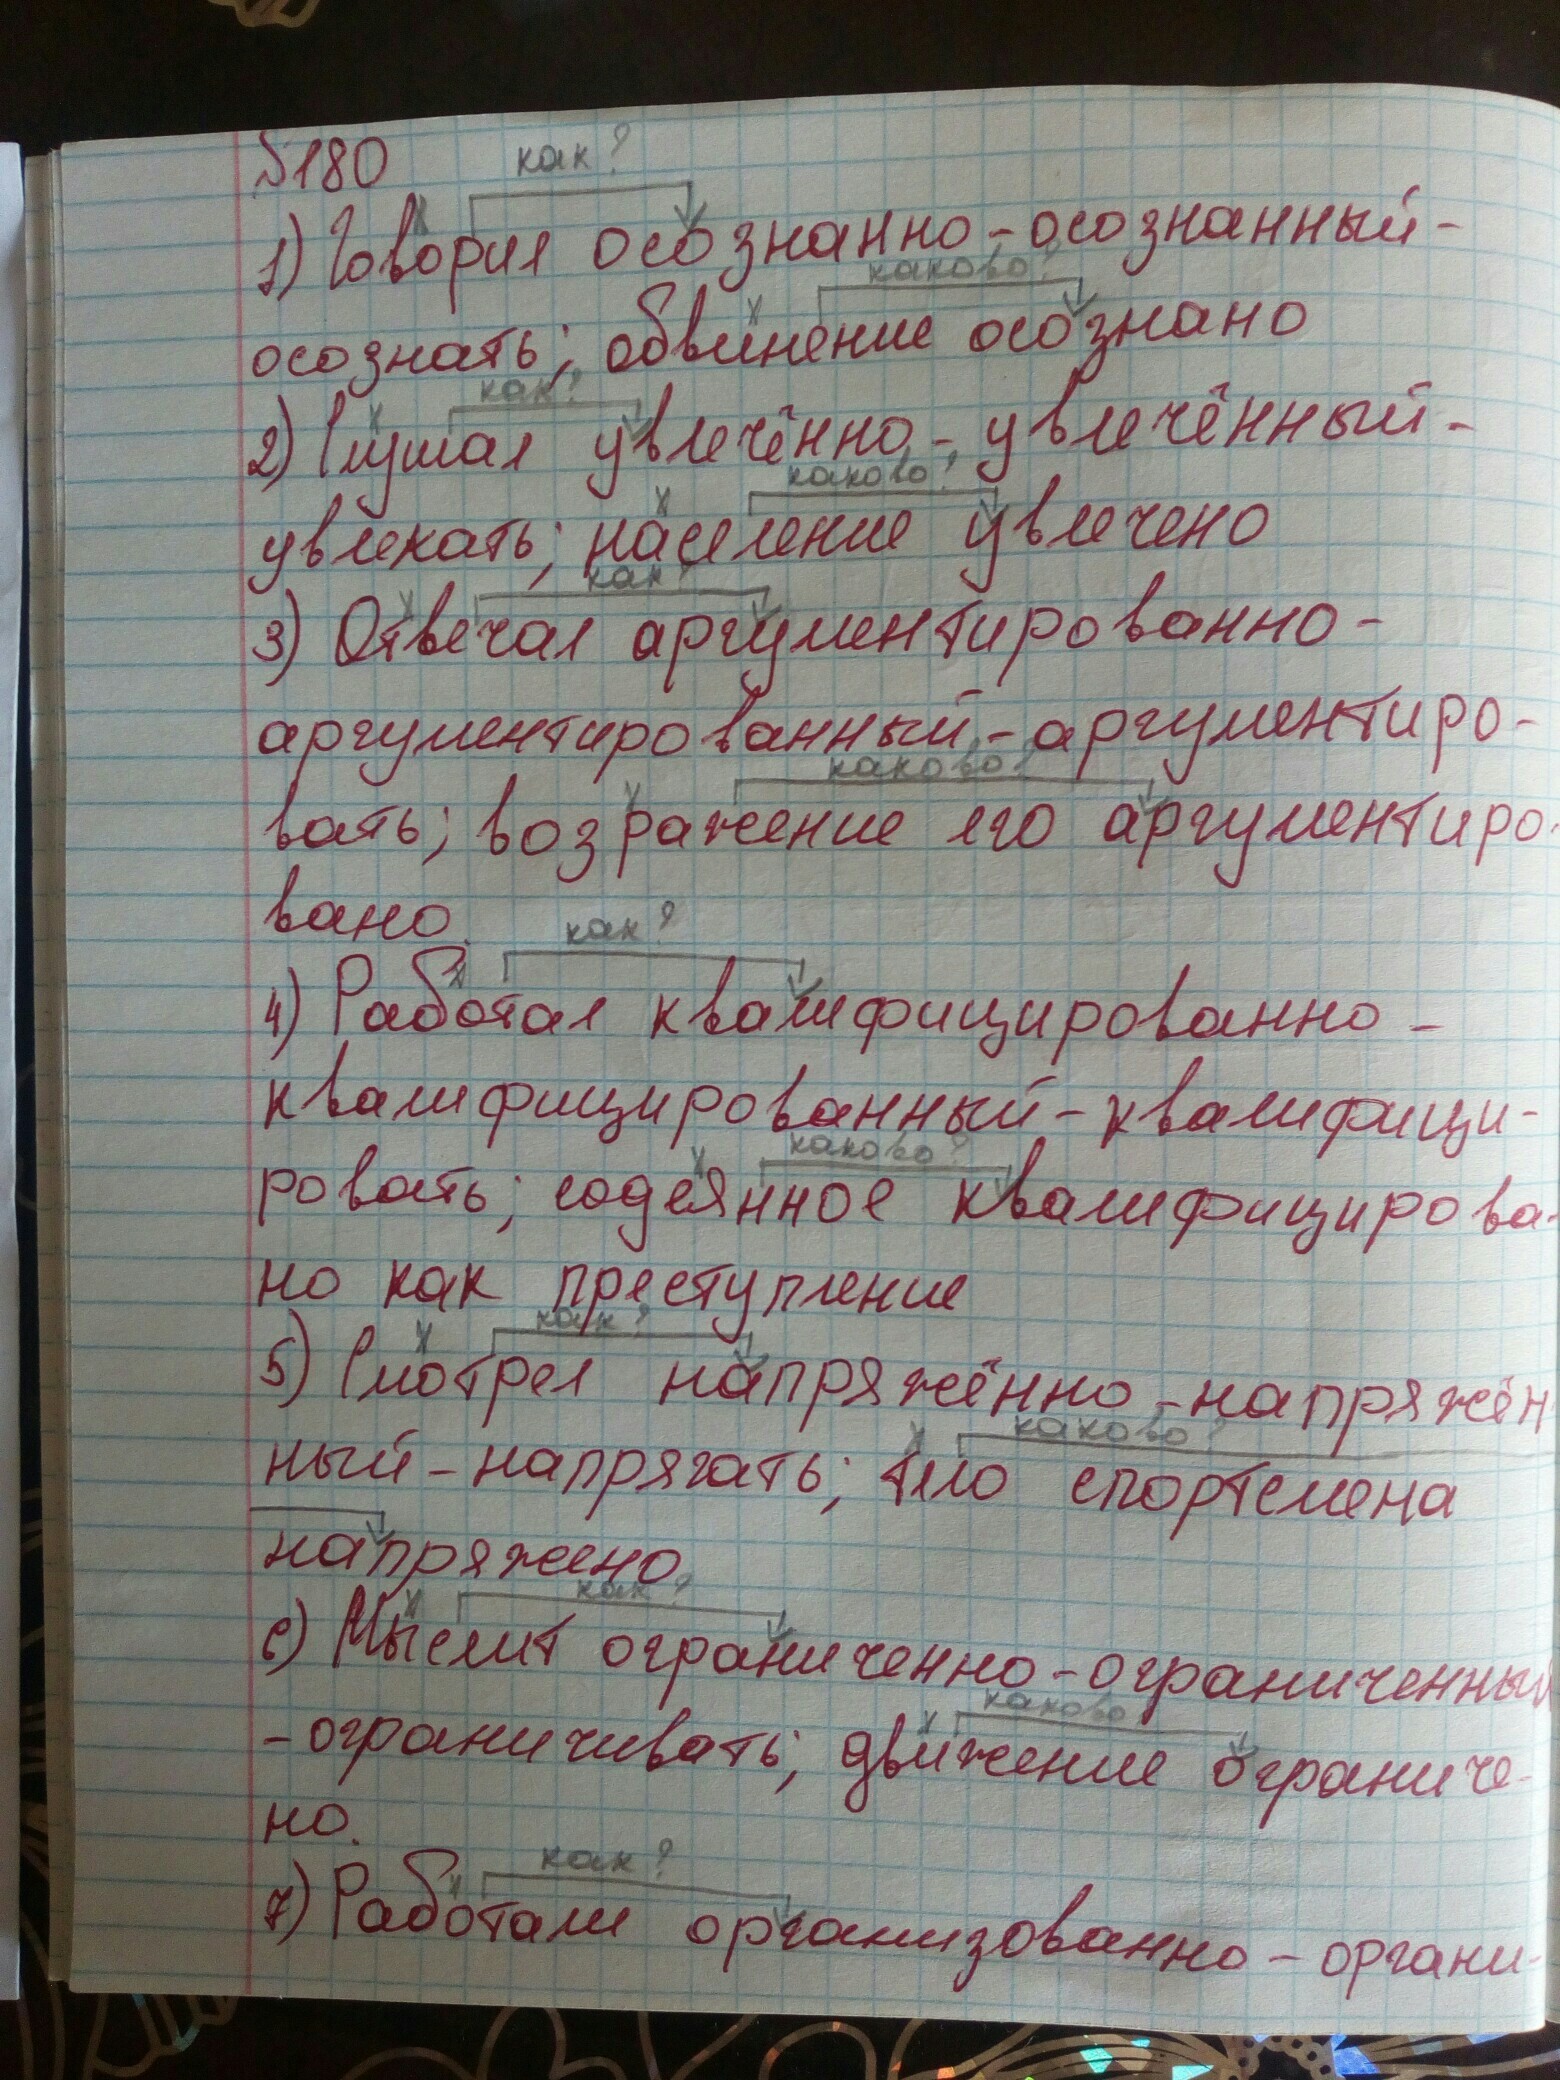 №180
как?
1) Говорил осознанно-осознанный-
каково?
осознать; обвинение осознано
как?
2) Слушал увлечённо-увлечённый-
каково?
увлекать; население увлечено
как?
3) Отвечал аргументированно-
аргументированный-аргументиро-
каково?
вать; возражение его аргументиро-
вано.
как?
4) Работал квалифицированно-
квалифицированный-квалифици-
каково?
ровать; содеянное квалифицирова-
но как преступление
как?
5) Смотрел напряжённо-напряжён
каково?
ный-напрягать; тело спортсмена
напряжено
как?
6) Мыслит ограниченно-ограниченный
каково
-ограничивать; движение ограниче-
но.
как?
7) Работали организованно-органи-